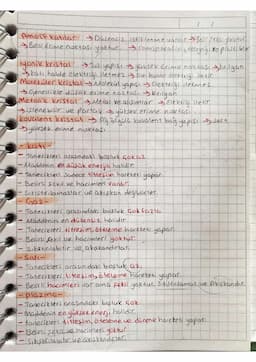 Amorf katılar → Düzensiz istiflenme vardır → Cam, Tereyağı, plastik
→ Belirli erime noktası yoktur.
İyonik kristal → Tuz yapısı → Yüksek erime noktası → Kırılgan
→ Katı halde elektriği iletmez → Sıvı halde elektriği iletir
Moleküler kristal → Molekül yapısı → Elektriği iletmez
→ Genellikle düşük erime noktası → Kırılgan
Metalik kristal → Metal katyonlar → Elektriği iletir
→ İşlenebilir ve parlak → yüksek erime noktası
Kovalent kristal → Ağ örgülü kovalent bağ yapısı → Sert
→ yüksek erime noktası
- Katı -
- Tanecikleri arasındaki boşluk çok az.
- Maddenin en düşük enerjili halidir.
- Tanecikleri sadece titreşim hareketi yapar.
- Belirli şekil ve hacimleri vardır.
- Sıkıştırılamazlar ve akışkan değildirler.
- Gaz -
- Tanecikleri arasındaki boşluk çok fazla.
- Maddenin en düzensiz halidir.
- Tanecikleri titreşim, öteleme hareketi yapar.
- Belirli şekil ve hacimleri yoktur.
- Sıkıştırılabilir ve akışkandırlar.
- Sıvı -
- Tanecikleri arasındaki boşluk az.
- Tanecikleri titreşim, öteleme hareketi yapar.
- Belirli hacimleri var ama şekli yoktur. Sıkıştırılamaz ve Akışkandır.
- Plazma -
- Tanecikleri arasındaki boşluk çok.
- Maddenin en yüksek enerjili halidir.
- Tanecikleri titreşim, öteleme ve dönme hareketi yapar.
- Belirli şekil ve hacimleri yoktur.
- Sıkıştırılabilir ve akışkandırlar.